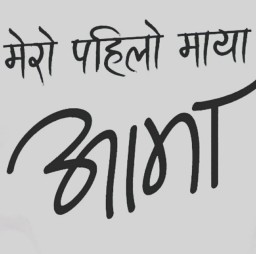 मेरो पहिलो माया
आमा